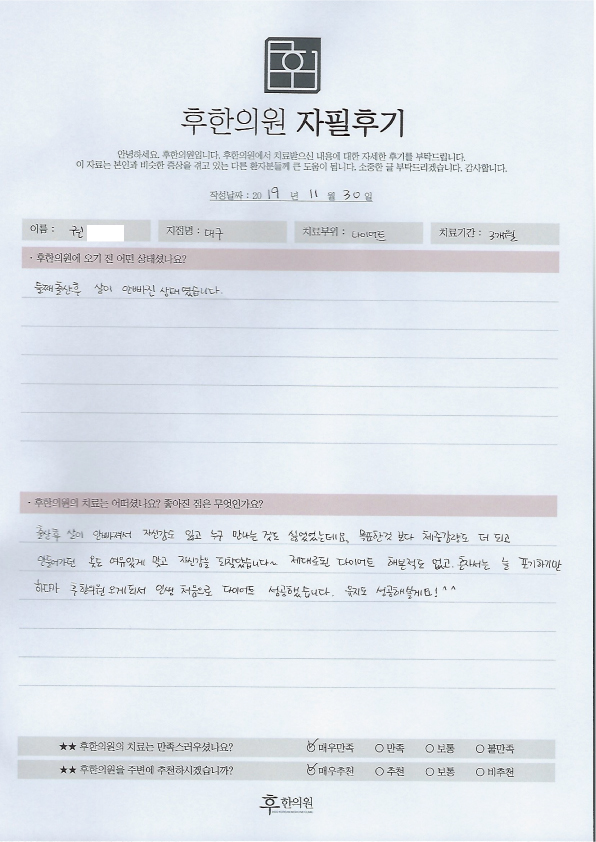 후한의원 자필후기
안녕하세요. 후한의원입니다. 후한의원에서 치료받으신 내용에 대한 자세한 후기를 부탁드립니다.
이 자료는 본인과 비슷한 증상을 겪고 있는 다른 환자분들께 큰 도움이 됩니다. 소중한 글 부탁드리겠습니다. 감사합니다.
작성날짜 : 2019 년 11 월 30 일
이름 : 권 지점명 : 대구 치료부위 : 다이어트 치료기간 : 3개월
· 후한의원에 오기 전 어떤 상태셨나요?
둘째출산후 살이 안빠진 상태였습니다.
· 후한의원의 치료는 어떠셨나요? 좋아진 점은 무엇인가요?
출산후 살이 안빠져서 자신감도 잃고 누구 만나는 것도 싫었었는데요, 목표한것 보다 체중감량도 더 되고
안들어가던 옷도 여유있게 맞고 자신감을 되찾았습니다~ 제대로된 다이어트 해본적도 없고. 혼자서는 늘 포기하기만
하다가 후한의원 오게되서 인생 처음으로 다이어트 성공했습니다. 유지도 성공해볼게요! ^^
★★ 후한의원의 치료는 만족스러우셨나요? 매우만족 만족 보통 불만족
★★ 후한의원을 주변에 추천하시겠습니까? 매우추천 추천 보통 비추천
후한의원